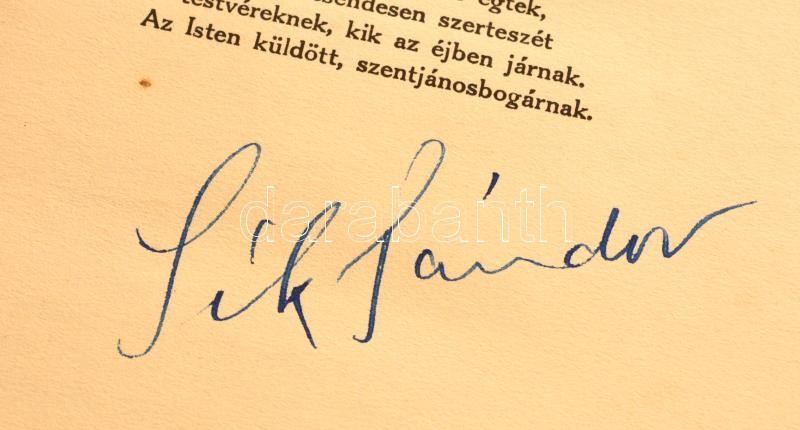 égtek,
csendesen szerteszét
testvéreknek, kik az éjben járnak.
Az Isten küldött, szentjánosbogárnak.
Sík Sándor
darabanth